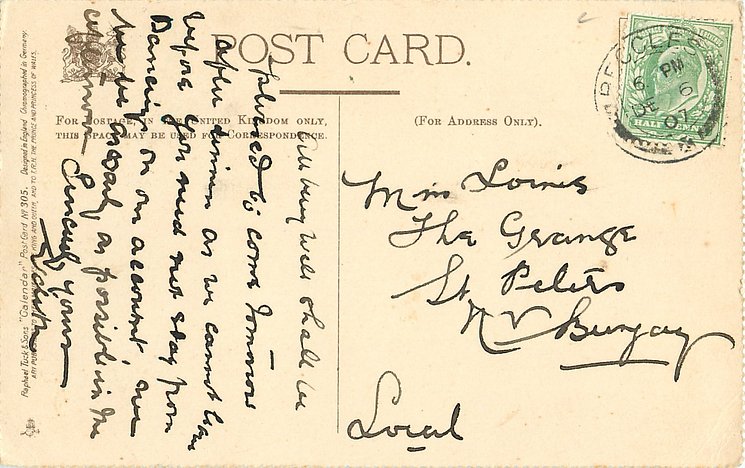 POST CARD.
FOR POSTAGE IN THE UNITED KINGDOM ONLY,
THIS SPACE MAY BE USED FOR CORRESPONDENCE.
(FOR ADDRESS ONLY).
BECCLES
6 PM
DE 6
07
HALFPENNY
very well shall be
pleased to come tomorrow
after dinner as we cannot leave
before you need not stay from
Dancing on our account, we
as possible in the
Sincerely yours
Miss
The Grange
St Peters
Nr Bungay
Local
Raphael Tuck & Sons "Calendar" Post Card No 305. Designed in England Chromographed in Germany
ART PUBLISHERS TO THEIR MAJESTIES THE KING AND QUEEN, AND TO T.R.H. THE PRINCE AND PRINCESS OF WALES.